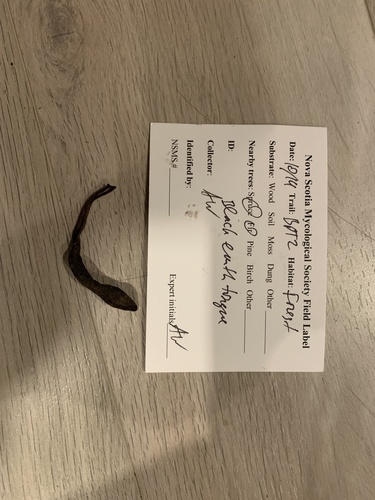 Nova Scotia Mycological Society Field Label
Date: 10/14 Trail: BPT2 Habitat: Forest
Substrate: Wood Soil Moss Dung Other
Nearby trees: Spruce Pine Birch Other
ID: Black earth tongue
Collector: AW
Identified by:
NSMS # Expert initials AW